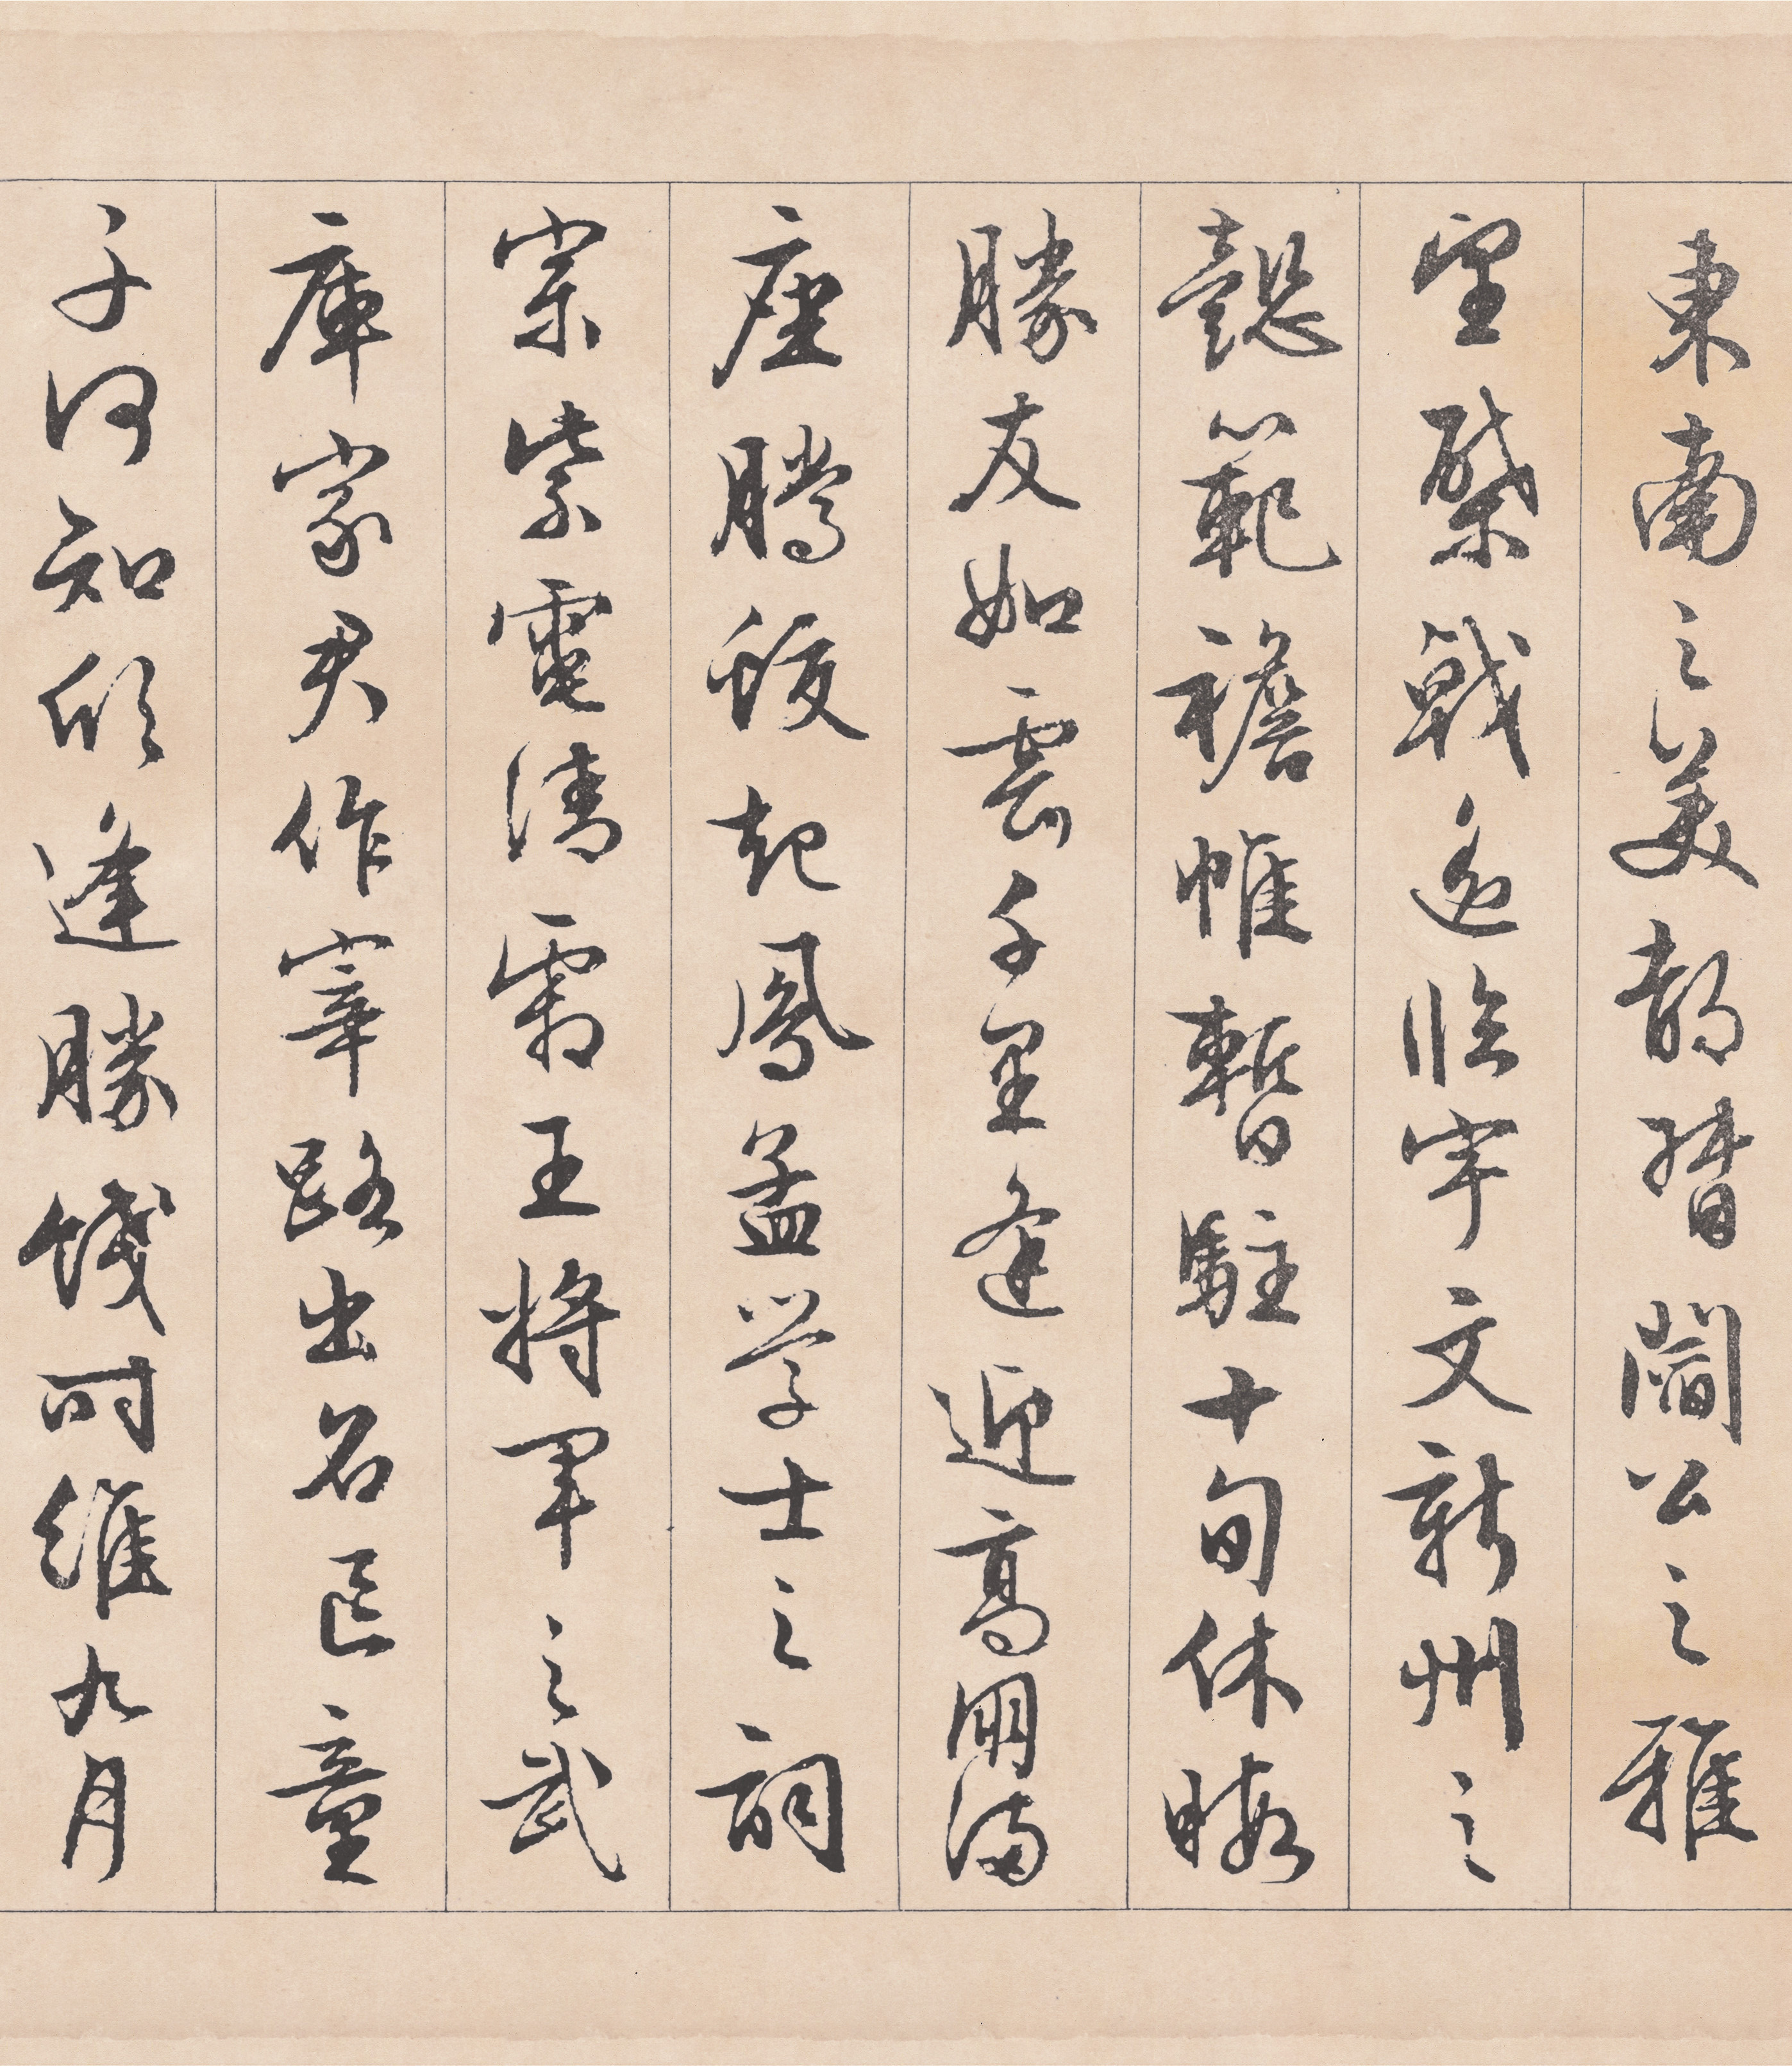 東南之美都督閻公之雅
望棨戟遙臨宇文新州之
懿範襜帷暫駐十旬休暇
勝友如雲千里逢迎高朋滿
座騰蛟起鳳孟學士之詞
宗紫電清霜王將軍之武
庫家君作宰路出名區童
子何知欣逢勝餞時維九月